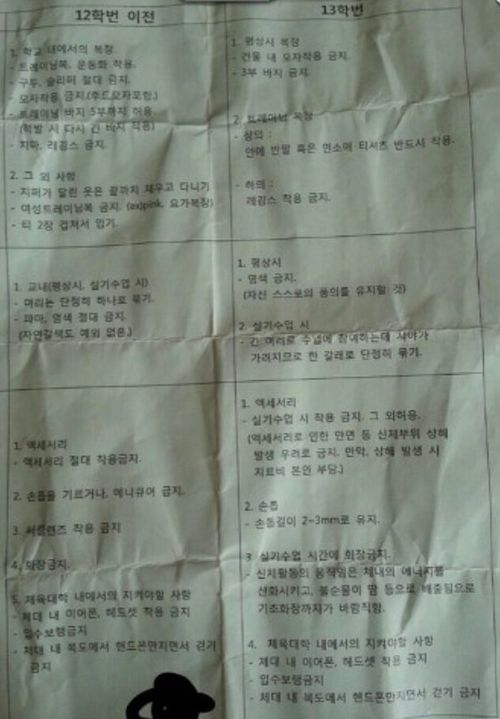 12학번 이전
1. 학교 내에서의 복장
- 트레이닝복, 운동화 착용.
- 구두, 슬리퍼 절대 금지.
- 모자착용 금지.(후드모자포함.)
- 트레이닝 바지 5부까지 허용
(적발 시 다시 긴 바지 착용)
- 치마, 레깅스 금지.
2. 그 외 사항
- 지퍼가 달린 옷은 끝까지 채우고 다니기
- 여성트레이닝복 금지. (ex)pink, 요가복장)
- 티 2장 겹쳐서 입기.
1. 교내(평상시, 실기수업 시)
- 머리는 단정히 하나로 묶기.
- 파마, 염색 절대 금지.
(자연갈색도 예외 없음.)
1. 액세서리
- 액세서리 절대 착용금지.
2. 손톱을 기르거나, 메니큐어 금지.
3. 써클렌즈 착용 금지
4. 화장금지.
5. 체육대학 내에서의 지켜야할 사항
- 체대 내 이어폰, 헤드셋 착용 금지
- 입수보행금지
- 체대 내 복도에서 핸드폰만지면서 걷기
금지
13학번
1. 평상시 복장
- 건물 내 모자착용 금지.
- 3부 바지 금지.
2. 트레이닝 복장
- 상의 :
안에 반팔 혹은 민소매 티셔츠 반드시 착용.
- 하의 :
레깅스 착용 금지.
1. 평상시
- 염색 금지.
(자신 스스로의 품의를 유지할 것)
2. 실기수업 시
- 긴 머리로 수업에 참여하는데 시야가
가려지므로 한 갈래로 단정히 묶기.
1. 액세서리
- 실기수업 시 착용 금지. 그 외허용.
(액세서리로 인한 안면 등 신체부위 상해
발생 우려로 금지. 만약, 상해 발생 시
치료비 본인 부담.)
2. 손톱
- 손톱길이 2~3mm로 유지.
3. 실기수업 시간에 화장금지.
- 신체활동의 움직임은 체내의 에너지를
산화시키고, 불순물이 땀 등으로 배출됨으로
기초화장까지가 바람직함.
4. 체육대학 내에서의 지켜야할 사항
- 체대 내 이어폰, 헤드셋 착용 금지
- 입수보행금지
- 체대 내 복도에서 핸드폰만지면서 걷기 금지